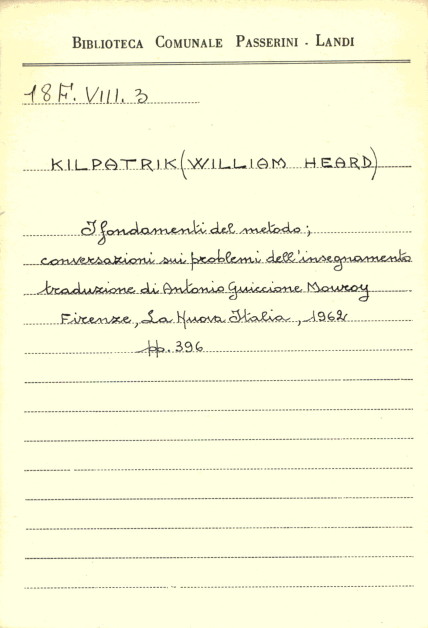 BIBLIOTECA COMUNALE PASSERINI - LANDI
18F. VIII. 3
KILPATRIK (WILLIAM HEARD)
I fondamenti del metodo;
conversazioni sui problemi dell'insegnamento
traduzione di Antonio Guiccione Mouroy
Firenze, La Nuova Italia, 1962
pp. 396